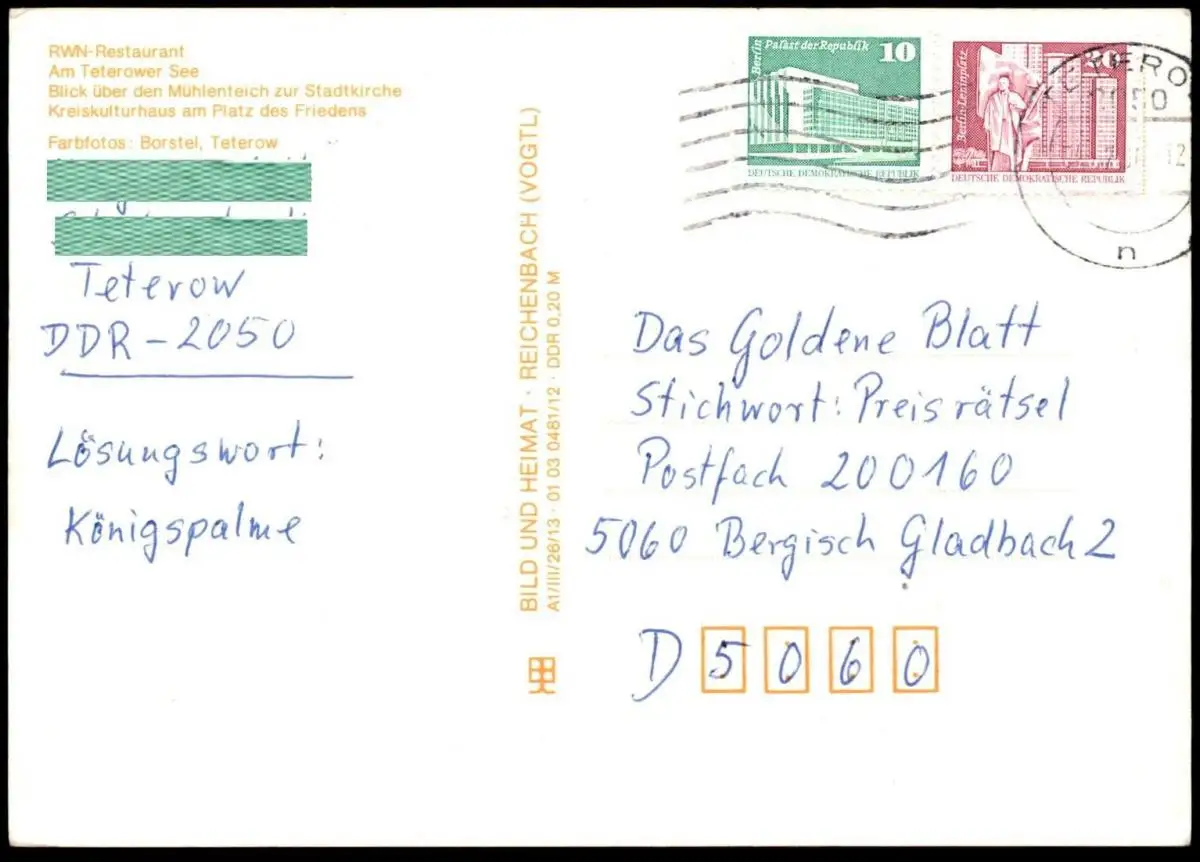 RWN-Restaurant
Am Teterower See
Blick über den Mühlenteich zur Stadtkirche
Kreiskulturhaus am Platz des Friedens
Farbfotos: Borstel, Teterow
Teterow
DDR-2050
Lösungswort:
Königspalme
BILD UND HEIMAT · REICHENBACH (VOGTL)
A1/III/26/13 · 01 03 0481/12 · DDR 0,20 M
Berlin
Palast der Republik
10
DEUTSCHE DEMOKRATISCHE REPUBLIK
Berlin-Leninplatz
20
DEUTSCHE DEMOKRATISCHE REPUBLIK
12
n
Das Goldene Blatt
Stichwort: Preisrätsel
Postfach 200160
5060 Bergisch Gladbach 2
D 5060